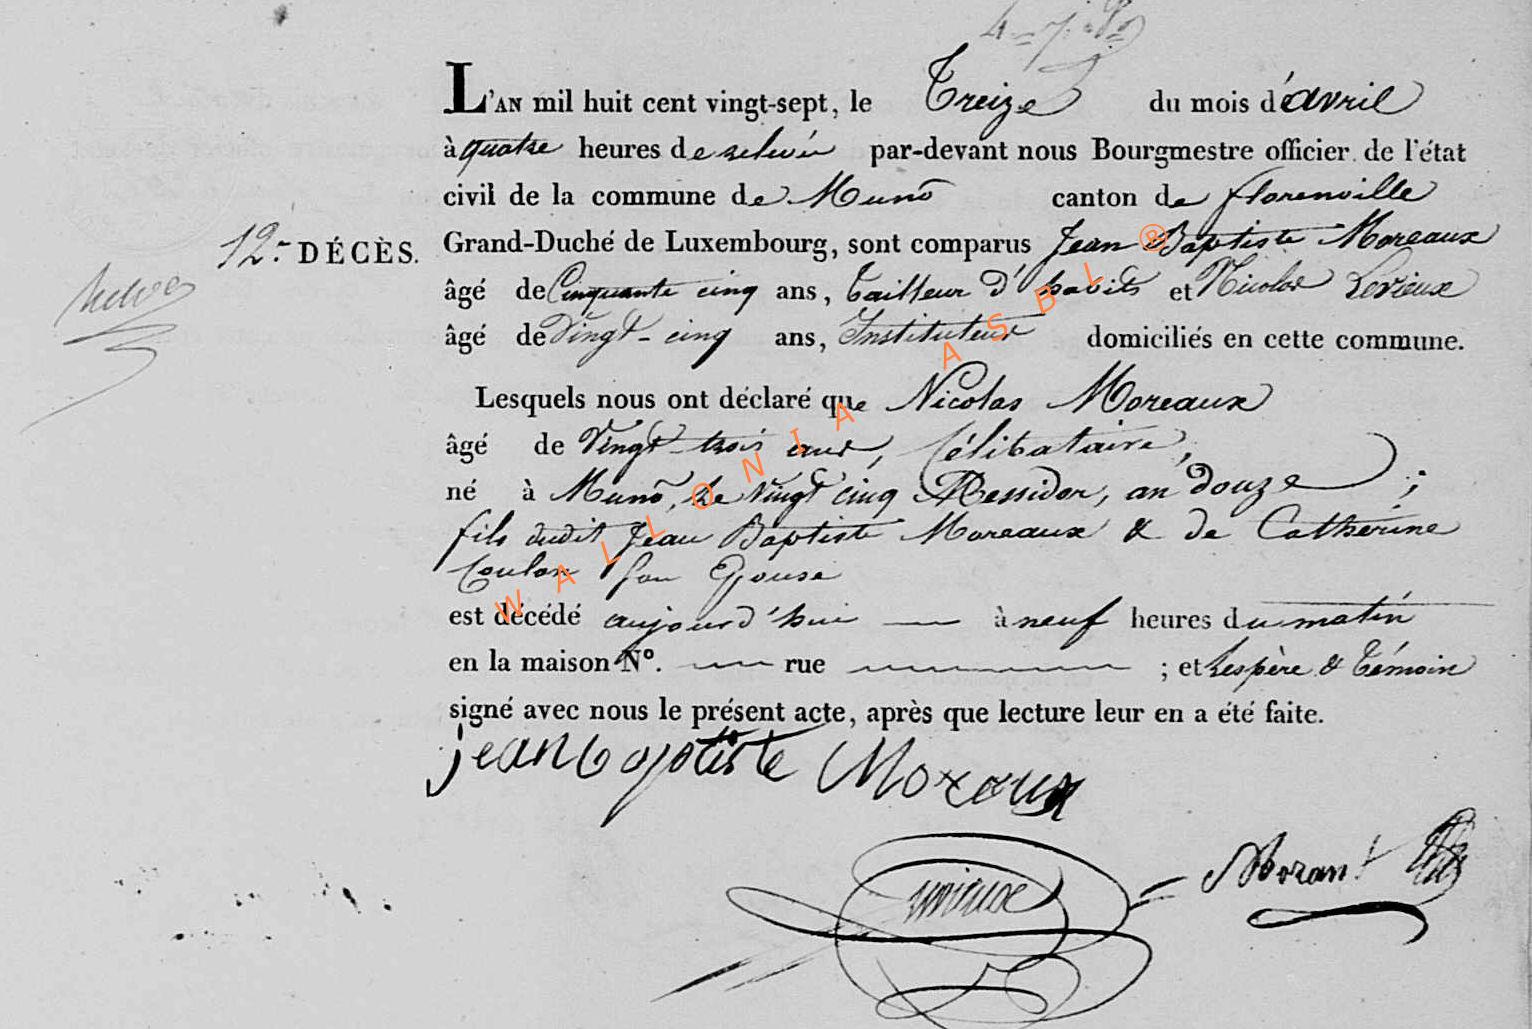 L'AN mil huit cent vingt-sept, le Treize du mois d'avril
à quatre heures de relevée par-devant nous Bourgmestre officier de l'état
civil de la commune de Muno canton de florenville
12e DÉCÈS. Grand-Duché de Luxembourg, sont comparus Jean Baptiste Moreaux
âgé de Cinquante cinq ans, Tailleur d'habits et Nicolas Levieux
âgé de Vingt-cinq ans, Instituteur domiciliés en cette commune.
Lesquels nous ont déclaré que Nicolas Moreaux
âgé de Vingt trois ans, Célibataire,
né à Muno, le Vingt cinq Messidor, an douze ;
fils dudit Jean Baptiste Moreaux & de Catherine
Coulon son Epouse
est décédé aujourd'hui à neuf heures du matin
en la maison N°. rue ; et les père & Témoin
signé avec nous le présent acte, après que lecture leur en a été faite.
jean baptiste Moreaux
Morant
WALLONIA ASBL ®